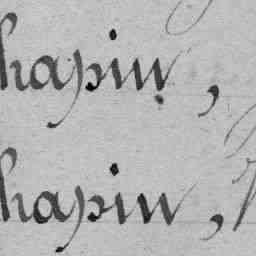 hapin,
hapin,